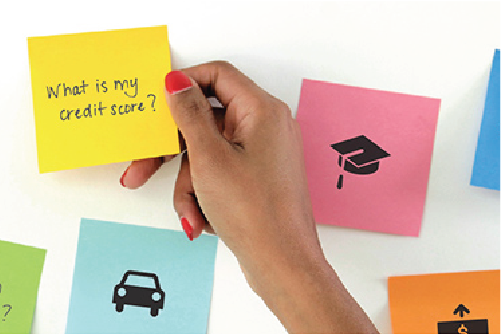 What is my
credit score?
?
$